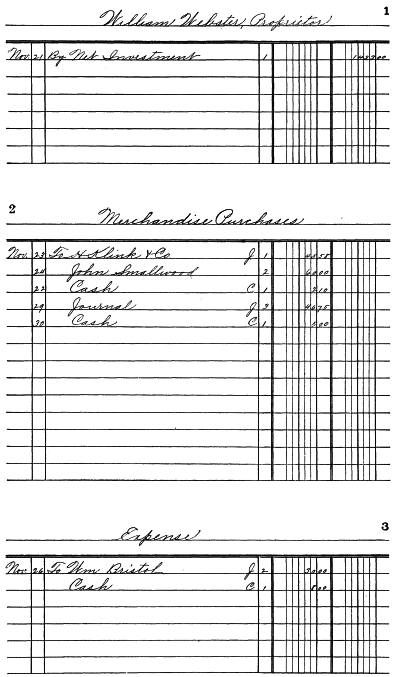 1
William Webster, Proprietor
Nov. 21 By Net Investment 1
2
Merchandise Purchases
Nov. 23 To H Klink & Co J 1
24 John Smallwood 2 60.00
22 Cash C 1 2.10
29 Journal J 3 40.75
30 Cash C 1 5.00
3
Expense
Nov. 26 To Wm Bristol J 2 30.00
Cash C 1 5.00